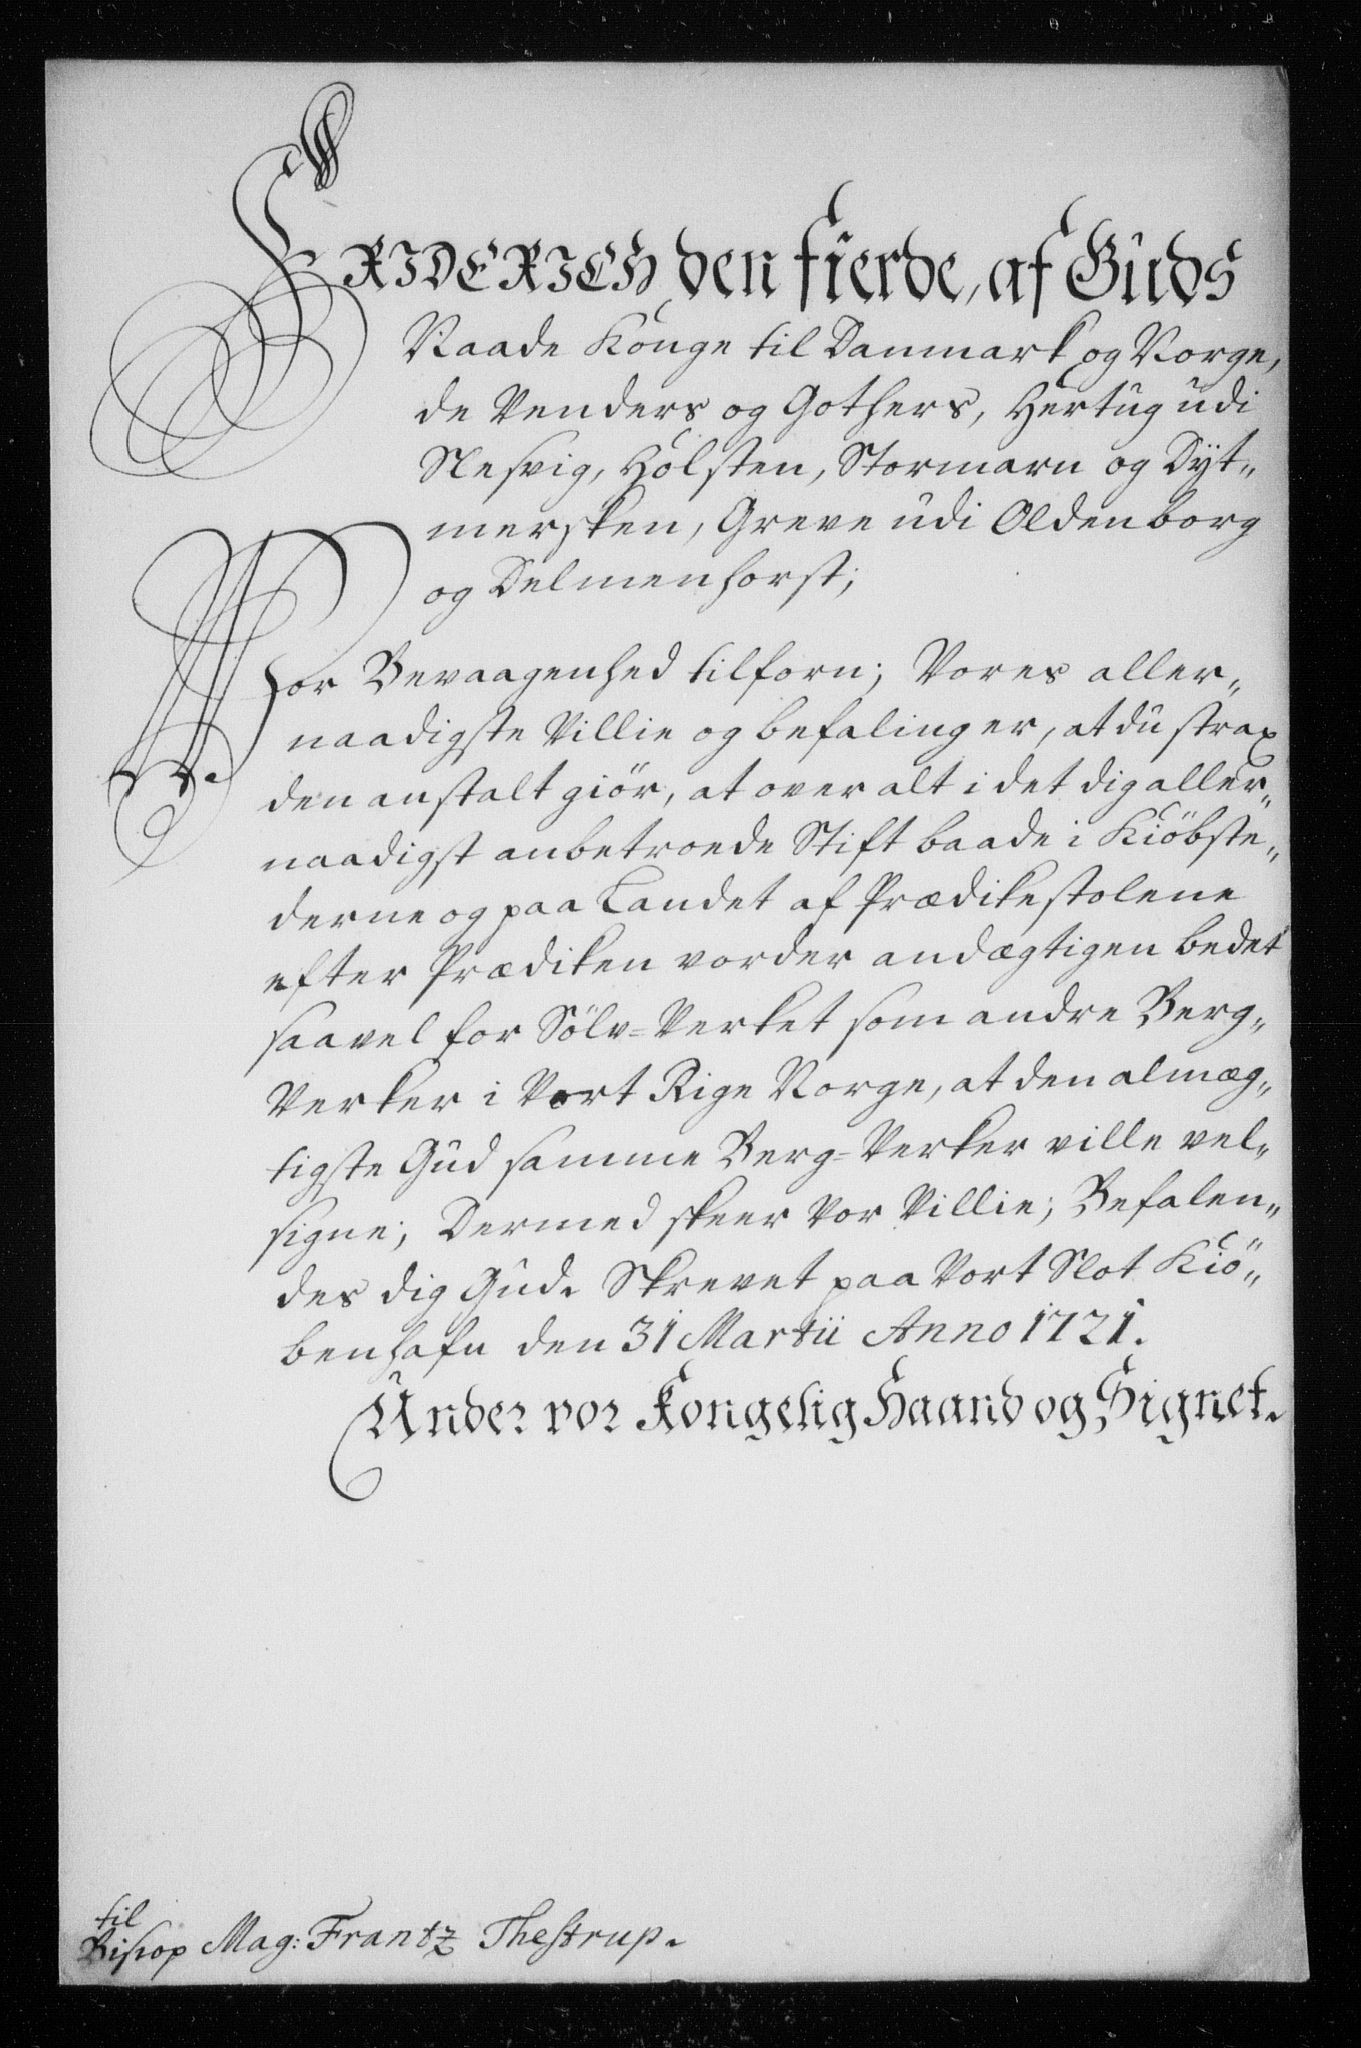 FRIDERICH den fierde, af Guds
Naade Konge til Danmark og Norge,
de Venders og Gothers, Hertug udi
Slesvig, Holsten, Stormarn og Dyt„
mersken, Greve udi Oldenborg
og Delmenhorst;
Vor Bevaagenhed tilforn; Vores aller„
naadigste Villie og befaling er, at du strax
den anstalt giör, at over alt i det dig aller„
naadigst anbetroede Stift baade i Kiöbste„
derne og paa Landet af Prædikestolene
efter Prædiken vorder andægtigen bedet
saavel for Sölv=Verket som andre Berg„
Verker i Vort Rige Norge, at den almæg„
tigste Gud samme Berg=Verker ville vel„
signe; Dermed skeer Vor Villie; Befalen„
des dig Gud. Skrevet paa Vort Slot Kiö„
benhafn den 31 Martii Anno 1721.
Under vor Kongelig Haand og Signet.
til
Biskop Mag: Frantz Thestrup.